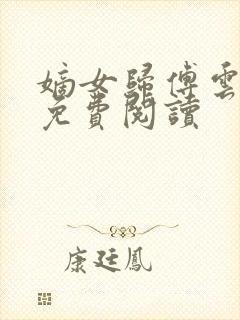 嫡女歸傅雲
免費閱讀
康廷鳳